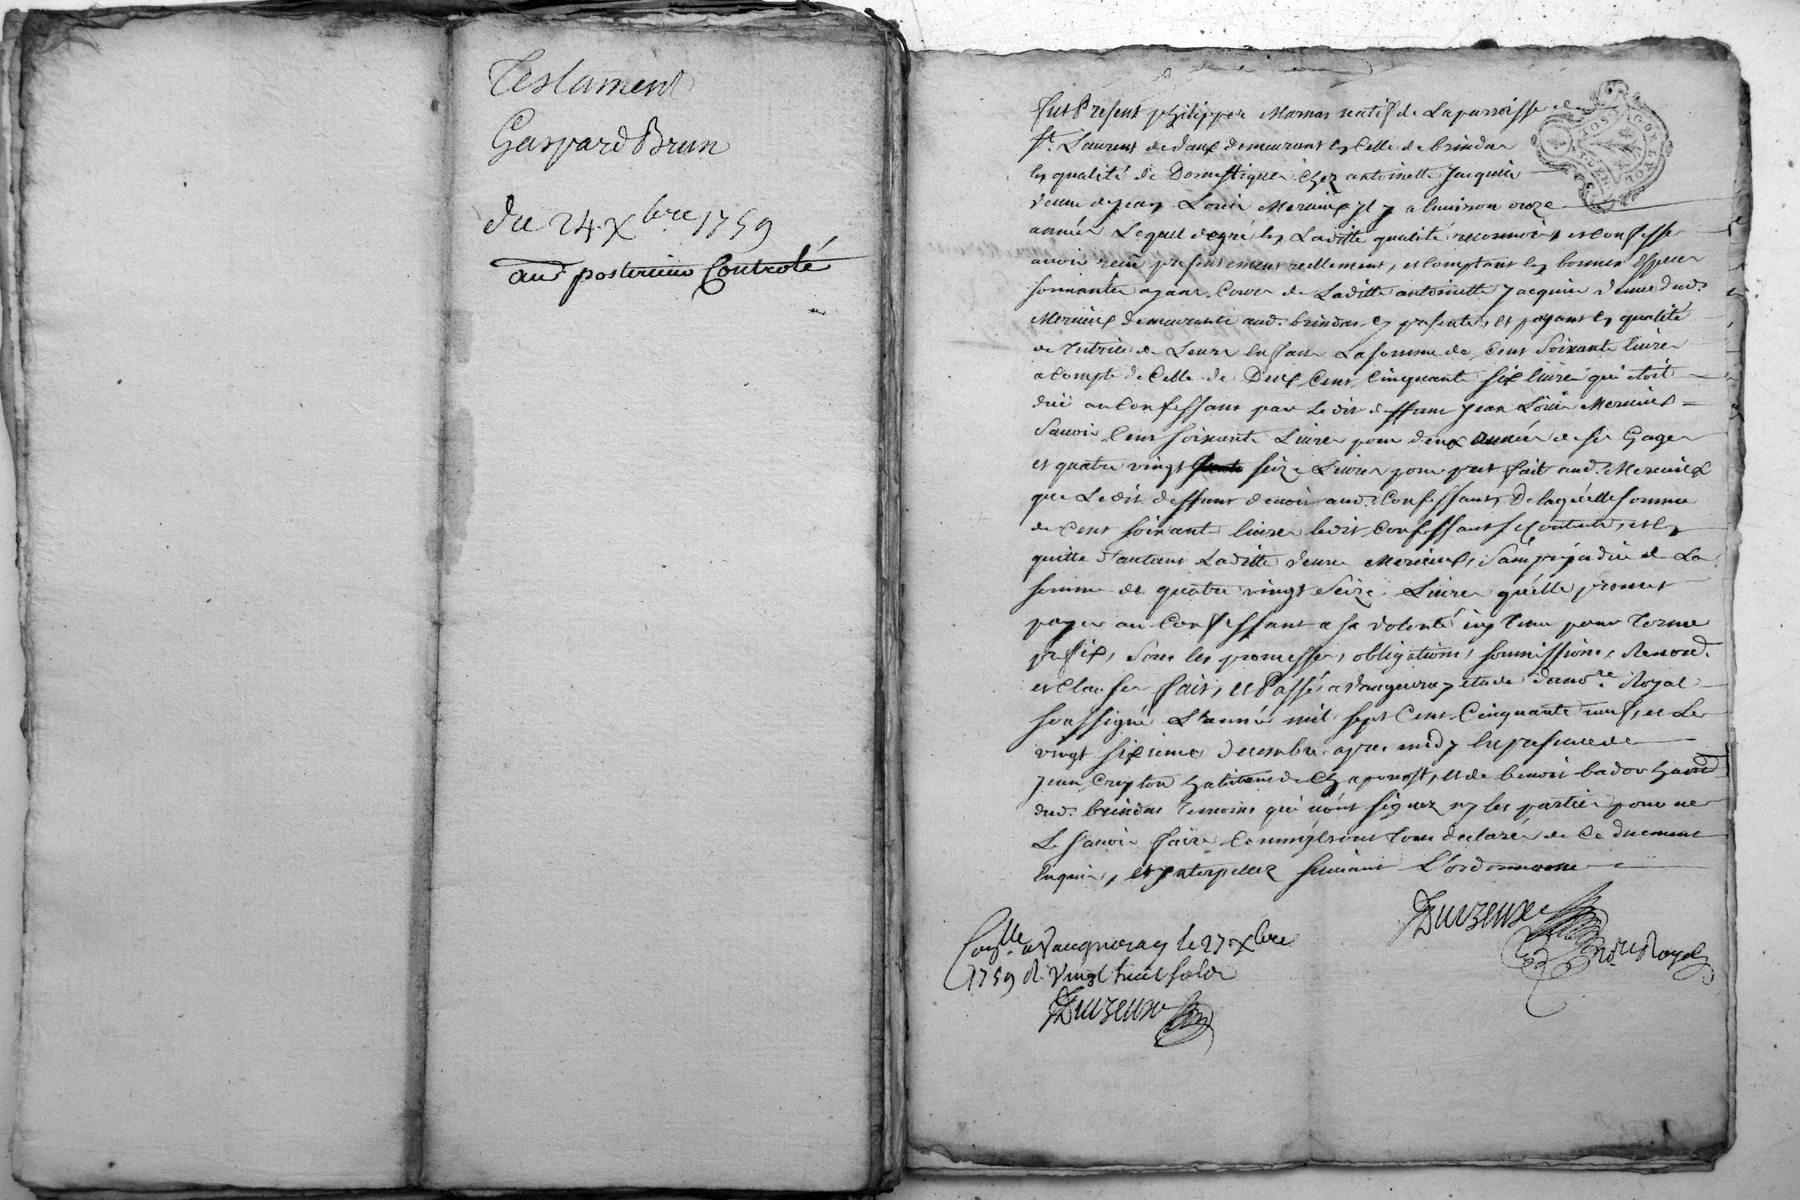 Testament
Gaspard Brun
du 24 Xbre 1759
aud. posterieur Controlé
fut Present philippe Mornas natif de La parroisse de
St. Laurent de Vaux demeurant en Celle de brindas
en qualité de Domestique chez antoinette Jacquier
veuve de jean Louis Mercier il y a Environ onze
années Lequel de gré en Laditte qualité reconnoit, et Confesse
avoir reçu presentement reellement, et Comptant en bonnes Espece
sonnantes ayant Cours de Laditte antoinette Jacquier veuve dud.
demeurante aud. brindas, cy presente, et payant en qualité
de Tutrice de Leurs Enfans La somme de Cent Soixante livres
a Compte de Celle de Deux Cent Cinquante six livres qui étoit
duë au Confessant par Ledit deffunt Jean Louis
Savoir Cent soixante Livres pour deux années de ses Gages
et quatre vingt seize Livres pour prest fait aud.
que Ledit deffunt devoit aud. Confessant, De laquelle somme
de Cent soixante livres ledit Confessant se Contente, et en
quitte d'autant Laditte veuve sans prejudice de La
somme de quatre vingt Seize Livres qu'elle promet
payer au Confessant a sa volonté pour Terme
prefix, sous les promesses, obligations, soumissions, Renond.
et Clauses fait, et Passé a Vaugneray etude du nore. Royal
soussigné L'année mil sept Cent Cinquante neuf, et Le
vingt sixieme decembre apres midy En presence de
jean habitant de Chaponost, et de benoit
dud. brindas Temoins qui n'ont signez ny les parties pour ne
Le savoir faire Comm'ils ont Tous declaré de Ce duement
Enquis, et jnterpellez suivant L'ordonnance
Conlle. a Vaugneray le 27 Xbre
1759 R. Vingt huit sols
nore Royal